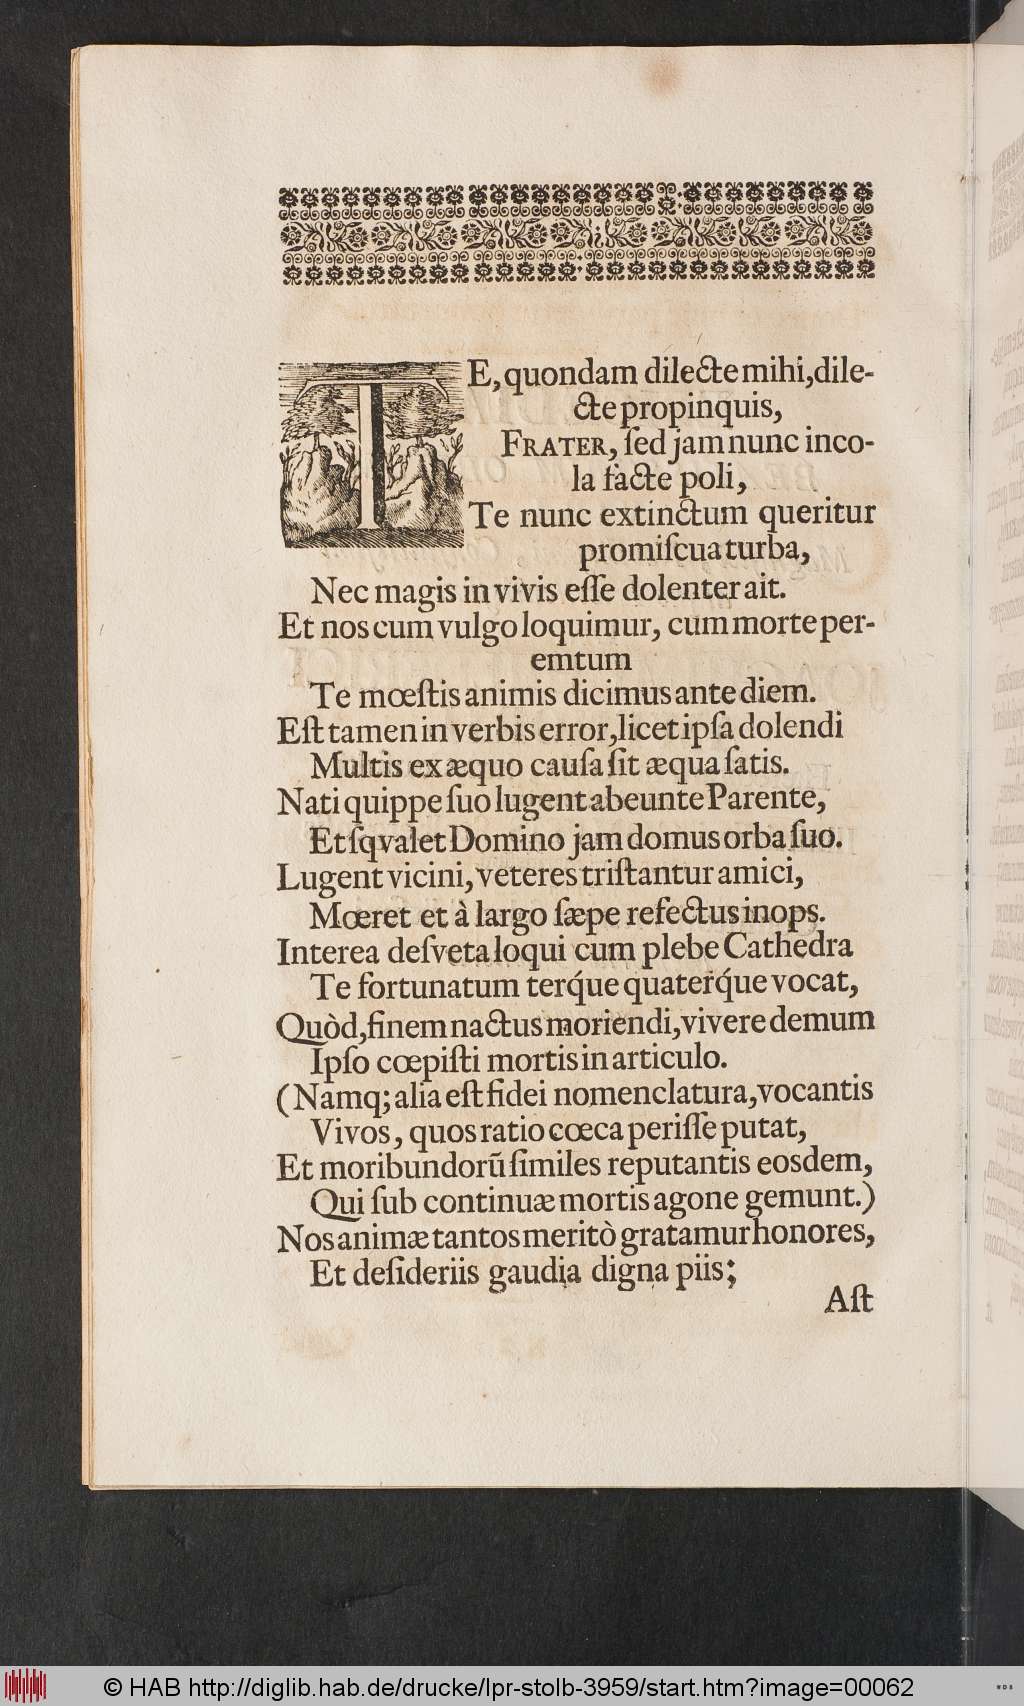 TE, quondam dilecte mihi, dile-
cte propinquis,
FRATER, ſed jam nunc inco-
la facte poli,
Te nunc extinctum queritur
promiſcua turba,
Nec magis in vivis eſſe dolenter ait.
Et nos cum vulgo loquimur, cum morte per-
emtum
Te mœſtis animis dicimus ante diem.
Eſt tamen in verbis error, licet ipſa dolendi
Multis ex æquo cauſa ſit æqua ſatis.
Nati quippe ſuo lugent abeunte Parente,
Et ſqvalet Domino jam domus orba ſuo.
Lugent vicini, veteres triſtantur amici,
Mœret et à largo ſæpe refectus inops.
Interea deſveta loqui cum plebe Cathedra
Te fortunatum terq́ue quaterq́ue vocat,
Quòd, finem nactus moriendi, vivere demum
Ipſo cœpiſti mortis in articulo.
(Namq; alia eſt fidei nomenclatura, vocantis
Vivos, quos ratio cœca periſſe putat,
Et moribundorũ ſimiles reputantis eosdem,
Qui ſub continuæ mortis agone gemunt.)
Nos animæ tantos meritò gratamur honores,
Et deſideriis gaudia digna piis;
Aſt
© HAB http://diglib.hab.de/drucke/lpr-stolb-3959/start.htm?image=00062